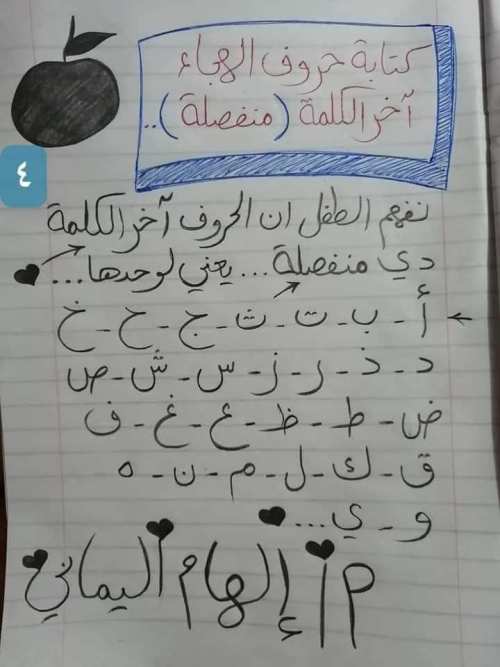 كتابة حروف الهجاء
آخر الكلمة (منفصلة)..
٤
نفهم الطفل ان الحروف آخر الكلمة
دي منفصلة... يعني لوحدها...
أ - ب - ت - ث - ج - ح - خ
د - ذ - ر - ز - س - ش - ص
ض - ط - ظ - ع - غ - ف
ق - ك - ل - م - ن - ه
و - ي...
م أ إلهام اليماني